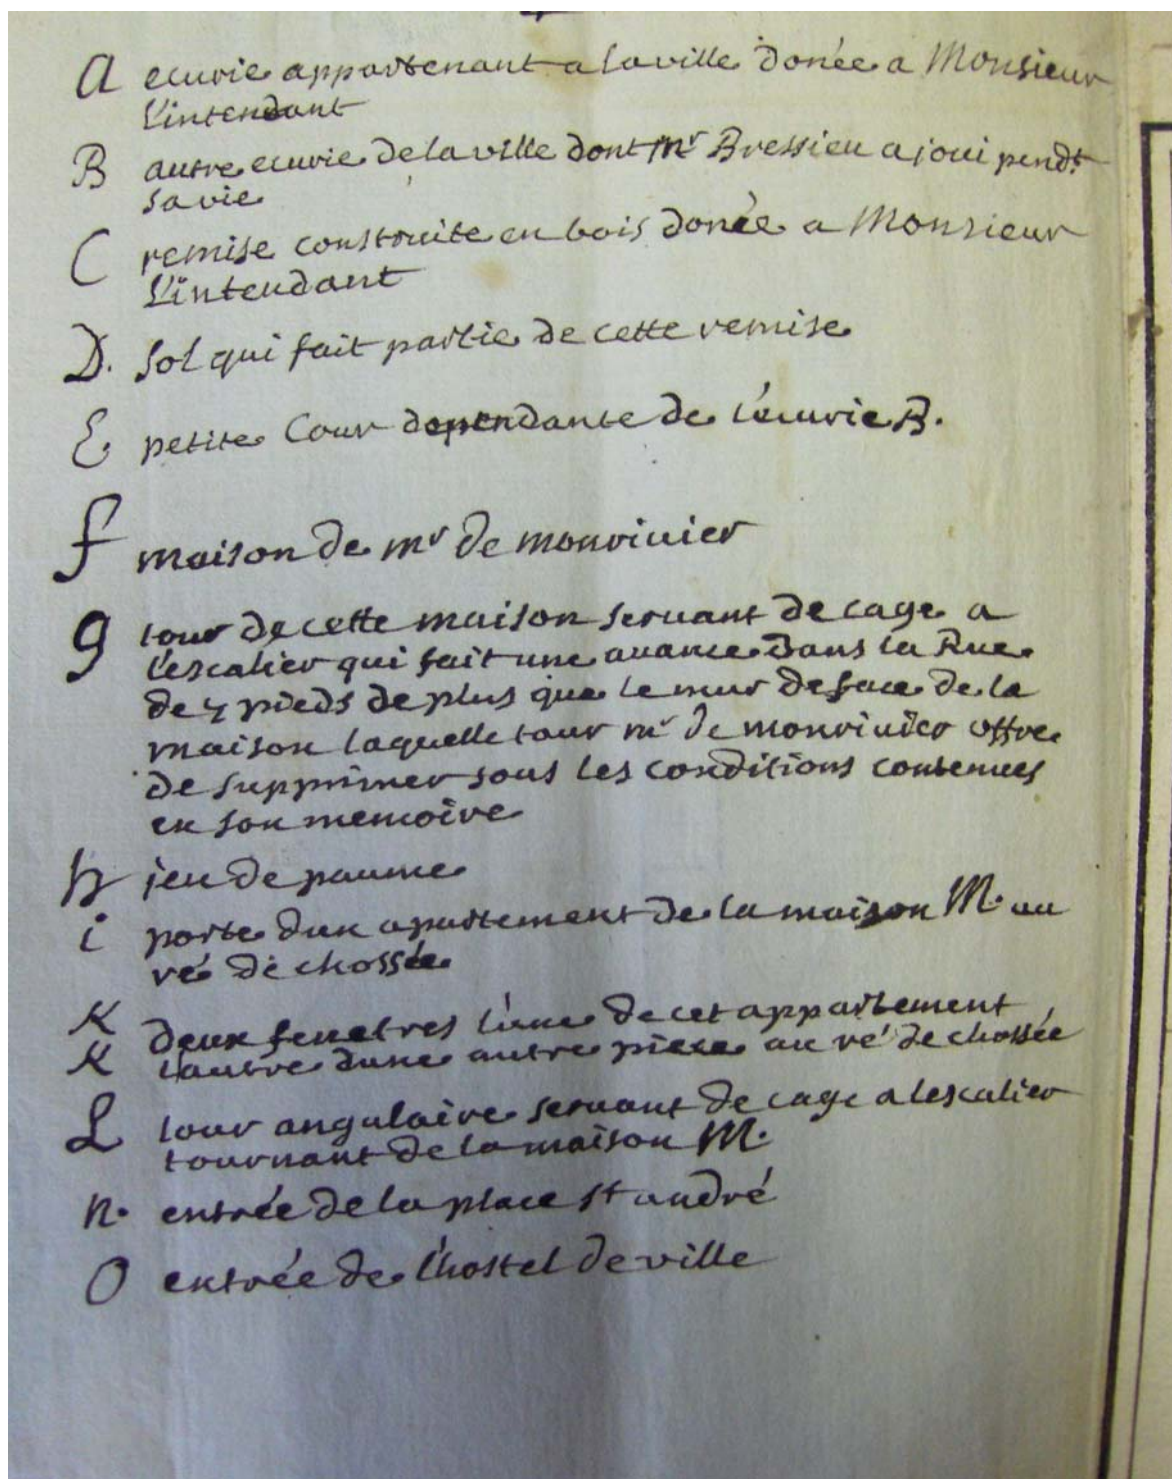 A ecurie appartenant a la ville donée a Monsieur
L'intendant
B autre ecurie de la ville dont mr Bressieu a joui pendt
sa vie
C remise construite en bois donée a Monsieur
L'intendant
D. sol qui fait partie de cette remise
E petite Cour dependante de l'écurie B.
f maison de mr de monrivier
g tour de cette maison servant de cage a
l'escalier qui fait une avance dans la Rue
de pieds de plus que le mur de face de la
maison laquelle tour mr de monrivier offre
de supprimer sous les conditions contenues
en son memoire
h jeu de paume
i porte dun apartement de la maison M. au
ré de chossée
K deux fenetres l'une de cet appartement
K l'autre dune autre piece au ré de chossée
L tour angulaire servant de cage a lescalier
tournant de la maison M.
n. entrée de la place st andré
O entrée de l'hostel de ville